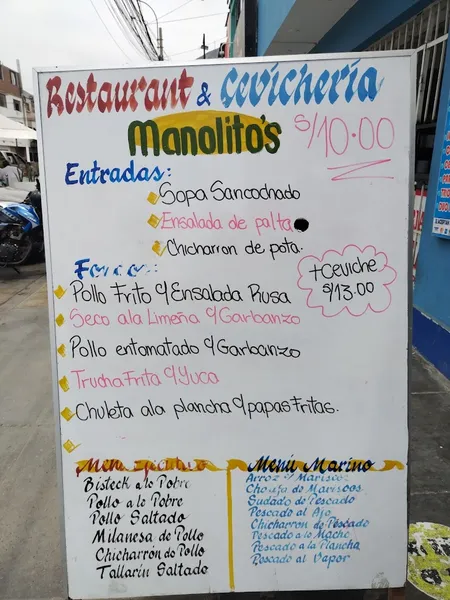 Restaurant & Cevichería
Manolito's
S/10.00
Entradas:
Sopa Sancochado
Ensalada de palta
Chicharron de pota.
+ceviche
S/13.00
Pollo Frito c/Ensalada Rusa
Seco ala Limeña c/Garbanzo
Pollo entomatado c/Garbanzo
Trucha Frita c/Yuca
Chuleta ala plancha c/papas Fritas.
Menú Ejecutivo
Bisteck a lo Pobre
Pollo a lo Pobre
Pollo Saltado
Milanesa de Pollo
Chicharrón de Pollo
Tallarín Saltado
Menú Marino
Arroz c/ Mariscos
Chaufa de Mariscos
Sudado de Pescado
Pescado al Ajo
Chicharron de Pescado
Pescado a lo Macho
Pescado a la Plancha
Pescado al Vapor